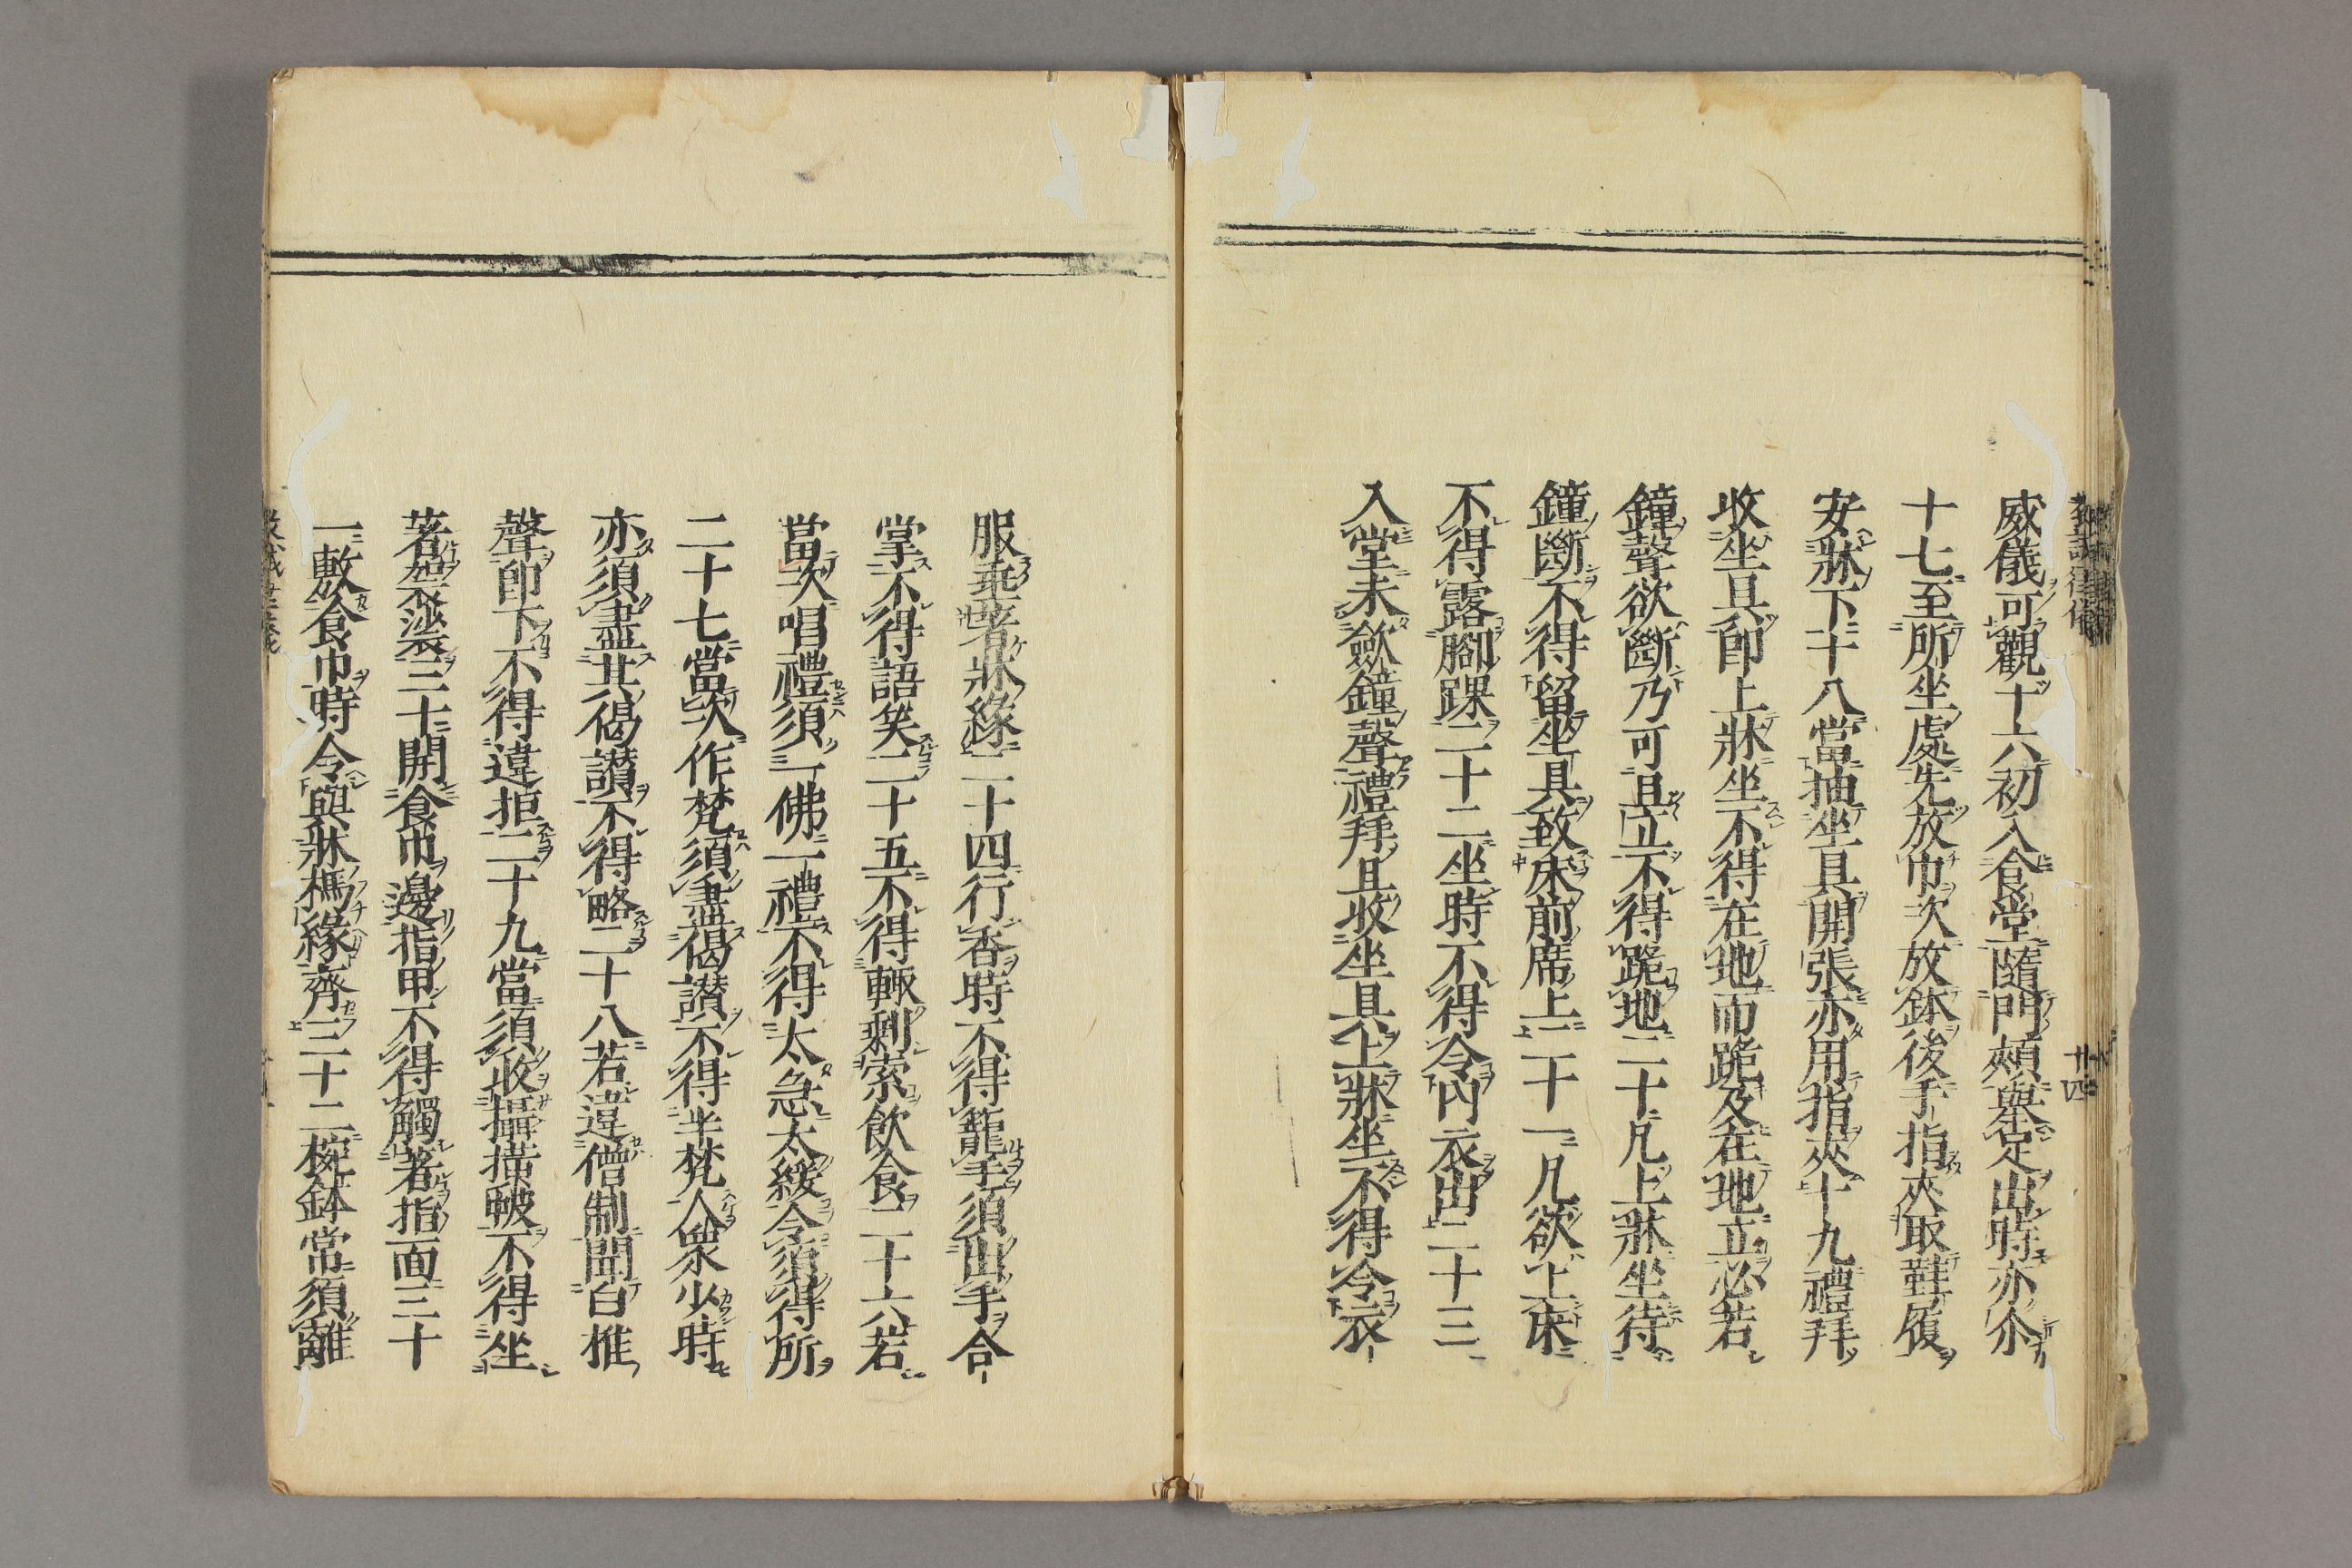 威儀可觀十六初入食堂隨門頰擧定出時亦尒
十七至所坐處先放巾次放鉢後手指夾取鞋履
安牀下十八當抽坐具開張亦用指夾十九禮拜
收坐具即上牀坐不得在地而跪及在地立必若
鐘聲欲斷乃可且立不得跪地二十凡上牀坐待
鐘斷不得留坐具致床前席上二十一凡欲上床
不得露腳踝二十二坐時不得令內衣出二十三
入堂未斂鐘聲禮拜且收坐具上牀坐不得令衣
服垂著牀緣二十四行香時不得籠手須出手合
掌不得語笑二十五不得輙剩索飲食二十六若
當次唱禮須一佛一禮不得太急太緩令須得所
二十七當次作梵須盡偈讃不得半梵人衆少時
亦須盡其偈讃不得略二十八若違僧制聞白椎
聲即下不得違拒二十九當須收攝擯帔不得坐
著袈裟三十開食巾邊指甲不得觸著指面三十
一敷食巾時令與牀榪緣齊三十二椀鉢常須離